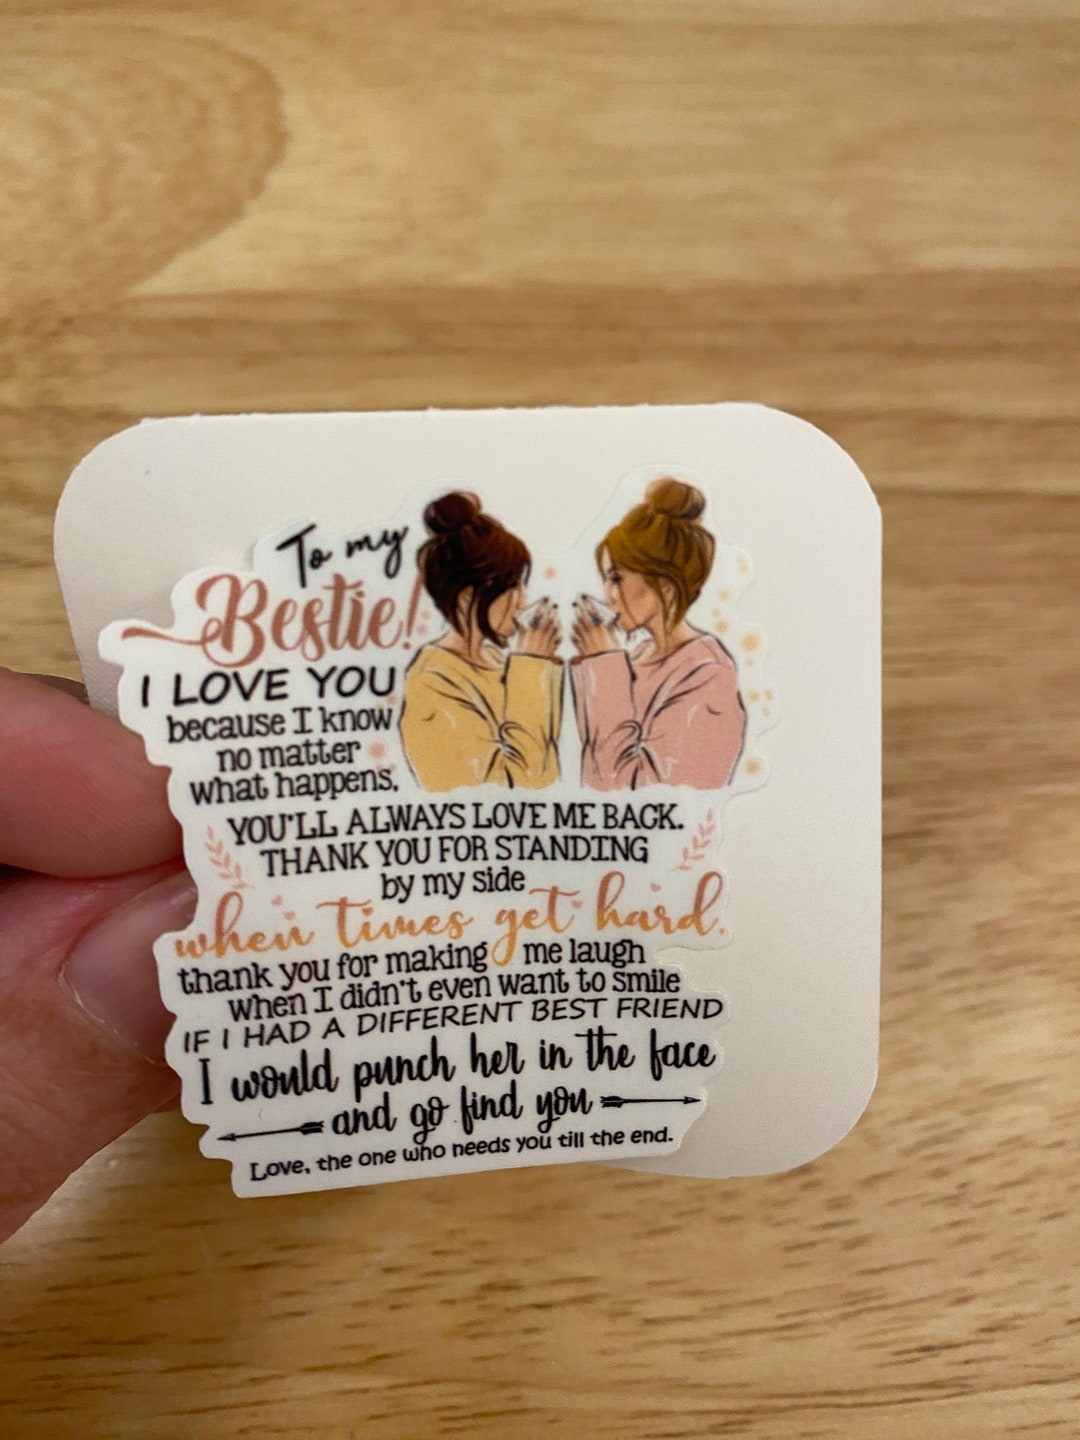 To my
Bestie!
I LOVE YOU
because I know
no matter
what happens,
YOU'LL ALWAYS LOVE ME BACK.
THANK YOU FOR STANDING
by my side
when times get hard.
thank you for making me laugh
when I didn't even want to smile
IF I HAD A DIFFERENT BEST FRIEND
I would punch her in the face
and go find you
Love, the one who needs you till the end.